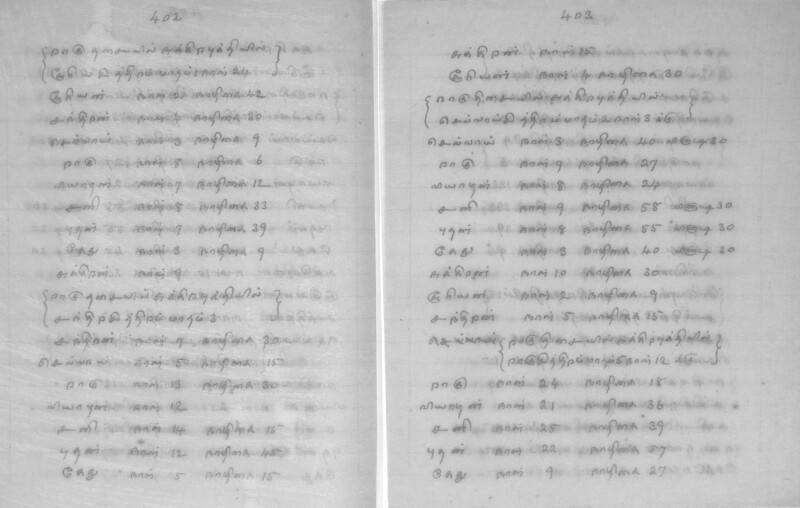 402
ராகு திசையில் சுக்கிரபுத்தியில்
சூரியந்திரம் நாள் 24
சூரியன் நாள் நாழிகை 42
சந்திரன் நாள் நாழிகை 30
செவ்வாய் நாள் 3 நாழிகை 9
ராகு நாள் 8 நாழிகை 6
வியாழன் நாள் 7 நாழிகை 12
சனி நாள் 8 நாழிகை 33
புதன் நாள் 7 நாழிகை 39
கேது நாள் 3 நாழிகை 9
சுக்கிரன் நாள் 9
ராகு திசையில் சுக்கிரபுத்தியில்
சந்திர மாதம் 3
சந்திரன் நாள் 7 நாழிகை 30
செவ்வாய் நாள் 5 நாழிகை 15
ராகு நாள் 13 நாழிகை 30
வியாழன் நாள் 12
சனி நாள் 14 நாழிகை 15
புதன் நாள் 12 நாழிகை 45
கேது நாள் 5 நாழிகை 15
403
சுக்கிரன் நாள் 15
சூரியன் நாள் 4 நாழிகை 30
ராகு திசையில் சுக்கிரபுத்தியில்
மாதம் 2 நாள் 3
செவ்வாய் நாள் 3 நாழிகை 40 30
ராகு நாள் 9 நாழிகை 27
வியாழன் நாள் 8 நாழிகை 24
சனி நாள் 9 நாழிகை 58 30
புதன் நாள் 8 நாழிகை 55 30
கேது நாள் 3 நாழிகை 40 30
சுக்கிரன் நாள் 10 நாழிகை 30
சூரியன் நாள் 2 நாழிகை 9
சந்திரன் நாள் 5 நாழிகை 15
ராகு திசையில் சுக்கிரபுத்தியில்
மாதம் 5 நாள் 12
ராகு நாள் 24 நாழிகை 18
வியாழன் நாள் 21 நாழிகை 36
சனி நாள் 25 நாழிகை 39
புதன் நாள் 22 நாழிகை 57
கேது நாள் 9 நாழிகை 27